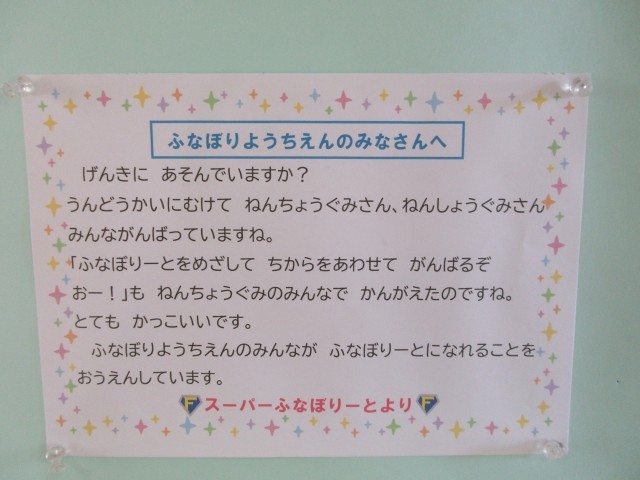 ふなぼりようちえんのみなさんへ
げんきに あそんでいますか？
うんどうかいにむけて ねんちょうぐみさん、ねんしょうぐみさん
みんながんばっていますね。
「ふなぼりーとをめざして ちからをあわせて がんばるぞ
おー！」も ねんちょうぐみのみんなで かんがえたのですね。
とても かっこいいです。
ふなぼりようちえんのみんなが ふなぼりーとになれることを
おうえんしています。
F スーパーふなぼりーとより F